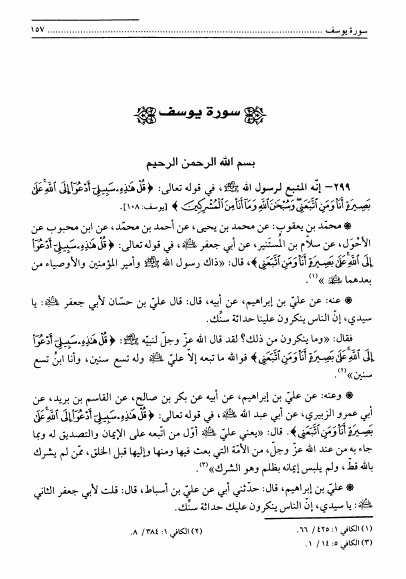 سورة يوسف ........................................................ ١٥٧
سورة يوسف
بسم الله الرحمن الرحيم
٢٩٩- إنّه المتبع لرسول الله ﷺ، في قوله تعالى: ﴿قُلْ هَٰذِهِۦ سَبِيلِىٓ أَدْعُوٓا۟ إِلَى ٱللَّهِ عَلَىٰ
بَصِيرَةٍ أَنَا۠ وَمَنِ ٱتَّبَعَنِى وَسُبْحَٰنَ ٱللَّهِ وَمَآ أَنَا۠ مِنَ ٱلْمُشْرِكِينَ﴾ [يوسف: ١٠٨].
❋ محمّد بن يعقوب: عن محمد بن يحيى، عن أحمد بن محمّد، عن ابن محبوب عن
الأحْوَل، عن سلام بن المستنير، عن أبي جعفر ﵇، في قوله تعالى: ﴿قُلْ هَٰذِهِۦ سَبِيلِىٓ أَدْعُوٓا۟
إِلَى ٱللَّهِ عَلَىٰ بَصِيرَةٍ أَنَا۠ وَمَنِ ٱتَّبَعَنِى﴾، قال: «ذاك رسول الله ﷺ وأمير المؤمنين والأوصياء من
بعدهما ﵈»(١).
❋ عنه: عن عليّ بن إبراهيم، عن أبيه، قال: قال علي بن حسّان لأبي جعفر ﵇: يا
سيدي، إنّ الناس ينكرون علينا حداثة سنّك.
فقال: «وما ينكرون من ذلك؟ لقد قال الله عزّ وجلّ لنبيّه ﷺ: ﴿قُلْ هَٰذِهِۦ سَبِيلِىٓ أَدْعُوٓا۟
إِلَى ٱللَّهِ عَلَىٰ بَصِيرَةٍ أَنَا۠ وَمَنِ ٱتَّبَعَنِى﴾ فوالله ما تبعه إلاّ عليّ ﵇ وله تسع سنين، وأنا ابنُ تسع
سنين»(٢).
❋ وعنه: عن عليّ بن إبراهيم، عن أبيه عن بكر بن صالح، عن القاسم بن بريد، عن
أبي عمرو الزبيري، عن أبي عبد الله ﵇، في قوله تعالى: ﴿قُلْ هَٰذِهِۦ سَبِيلِىٓ أَدْعُوٓا۟ إِلَى ٱللَّهِ عَلَىٰ
بَصِيرَةٍ أَنَا۠ وَمَنِ ٱتَّبَعَنِى﴾. قال: «يعني عليّ ﵇ أوّل من اتّبعه على الإيمان والتصديق له وبما
جاء به من عند الله عزّ وجلّ، من الأمّة التي بعث فيها ومنها وإليها قبل الخلق، ممّن لم يشرك
بالله قط، ولم يلبس إيمانه بظلم وهو الشرك»(٣).
❋ عليّ بن إبراهيم، قال: حدّثني أبي عن عليّ بن أسباط، قال: قلت لأبي جعفر الثاني
﵇: يا سيدي، إنّ الناس ينكرون عليك حداثة سنّك.
(١) الكافي ١: ٤٢٥/ ٦٦.
(٢) الكافي ١: ٣٨٤/ ٨.
(٣) الكافي ٥: ١٤/ ١.